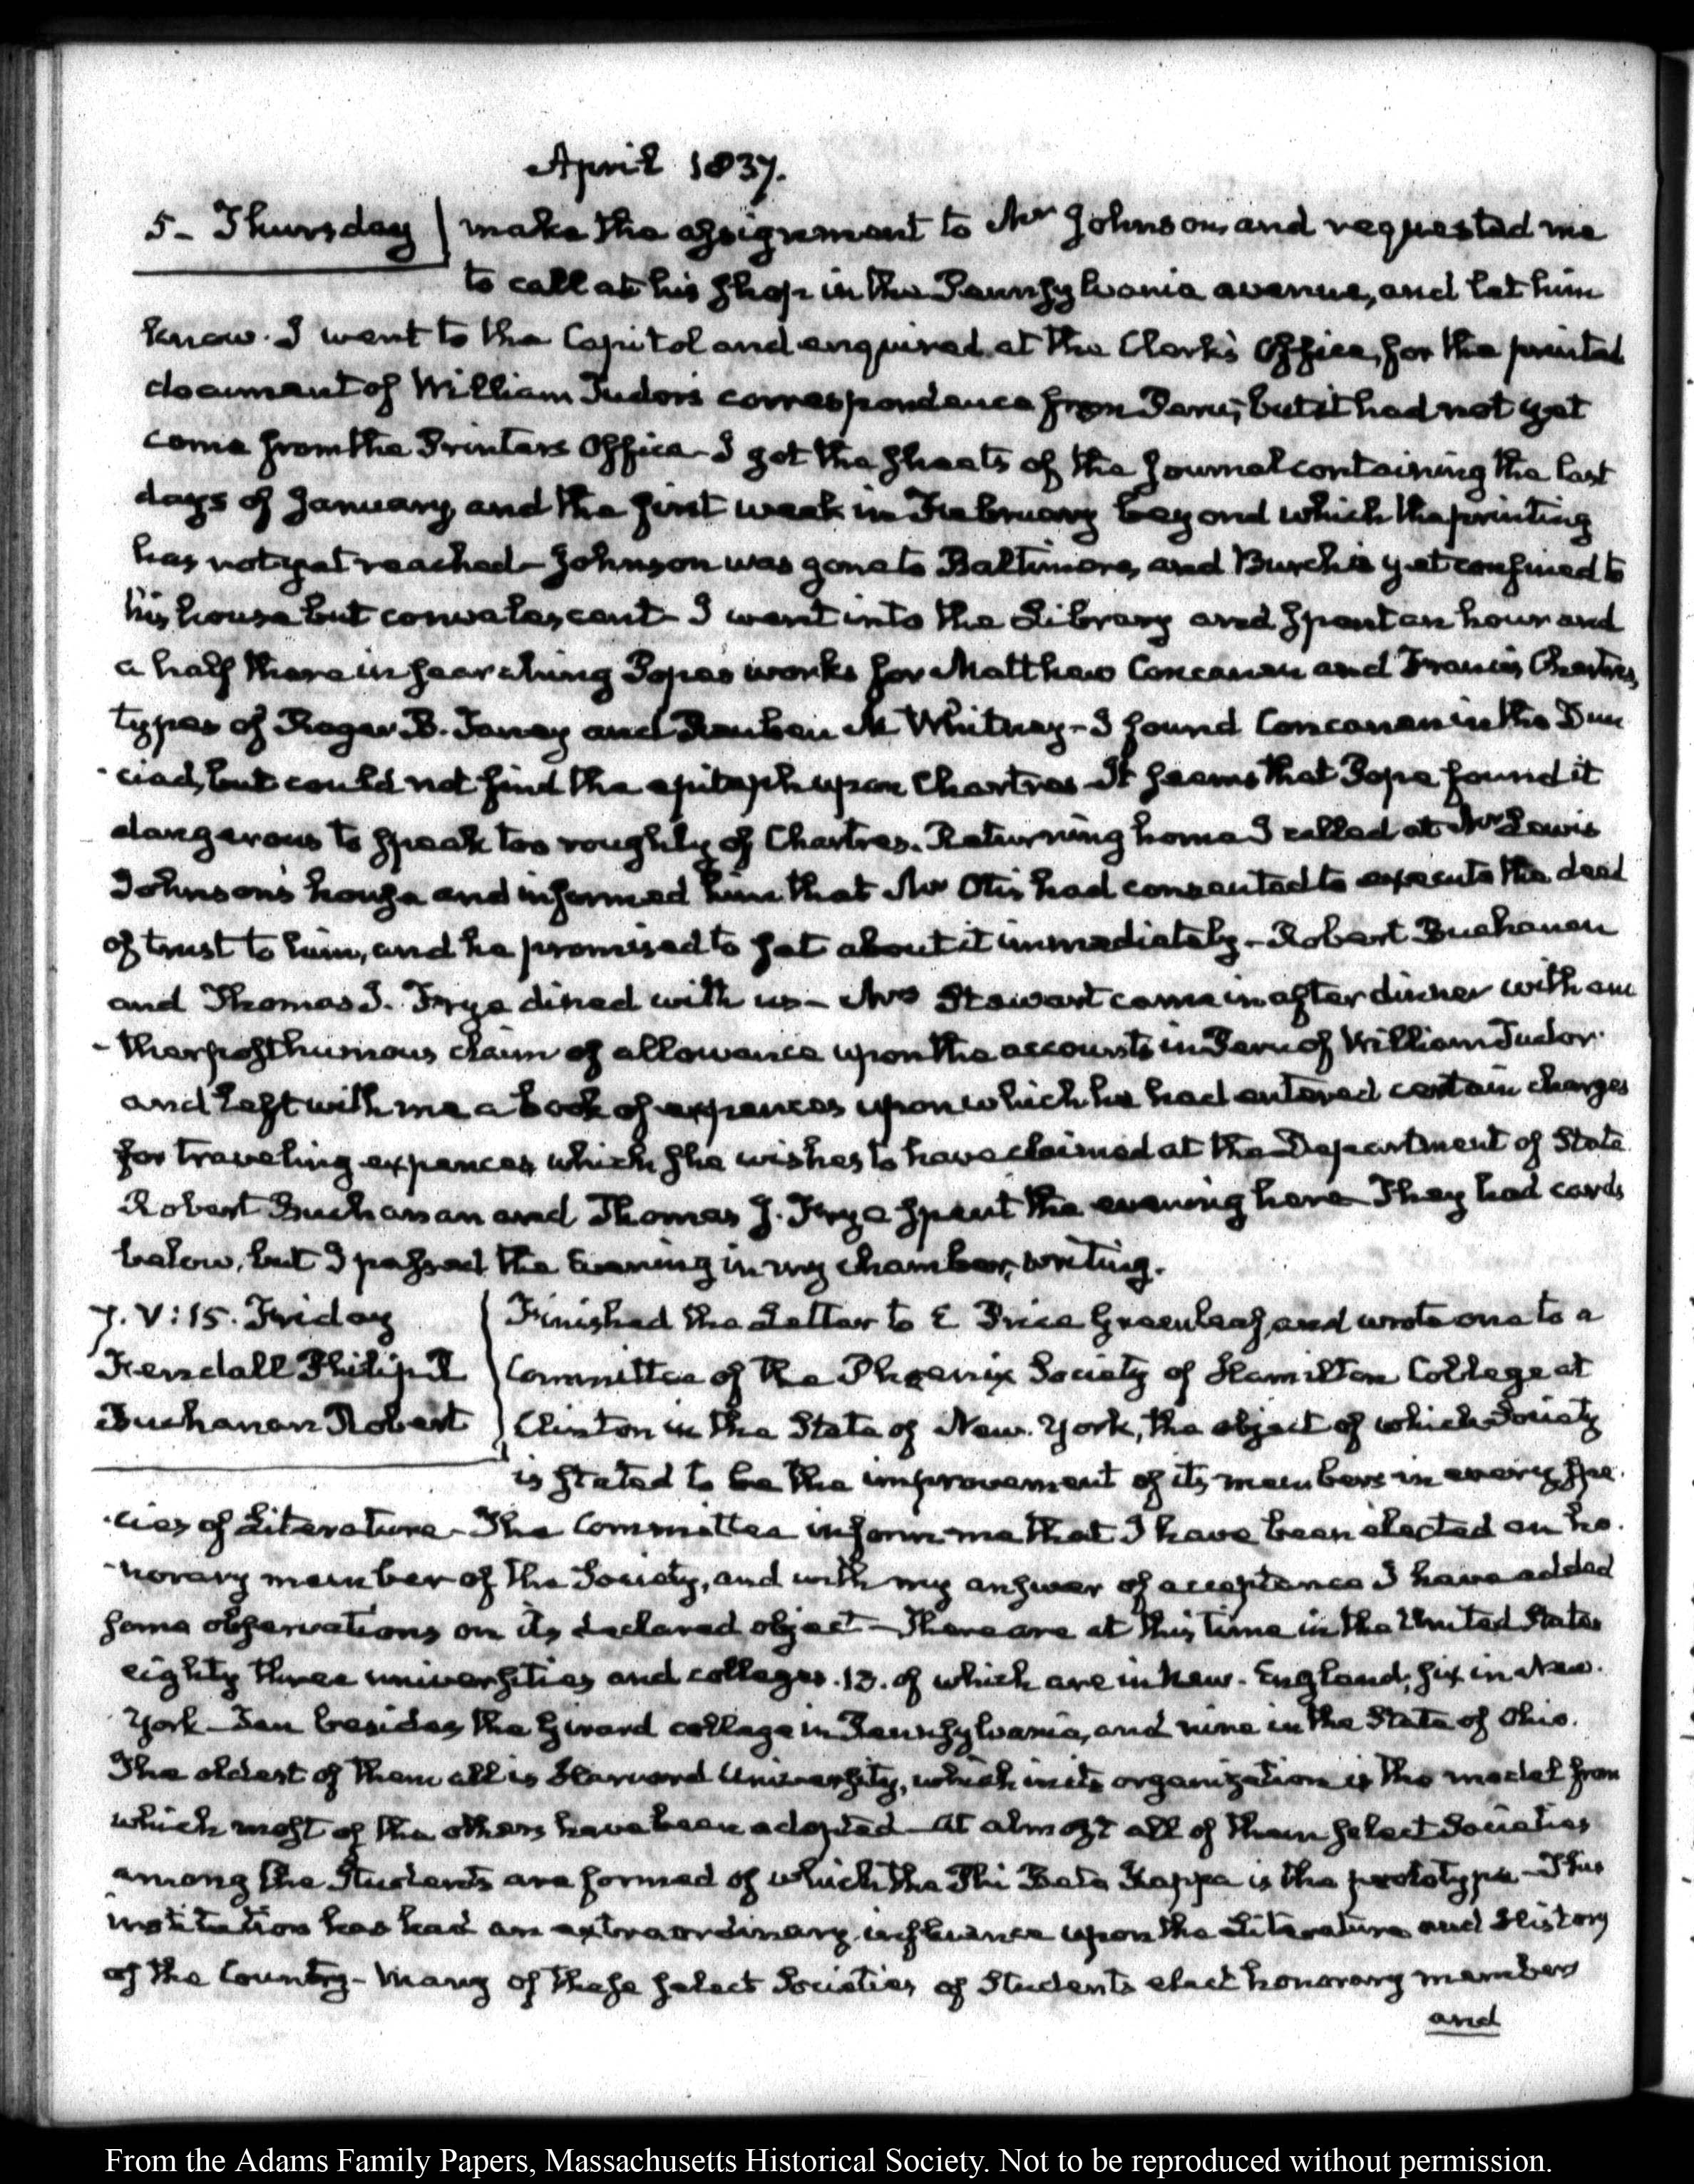 April 1837.
5- Thursday make the assignment to Mr Johnson, and requested me
to call at his shop in the Pennsylvania avenue, and let him
know. I went to the Capitol and enquired at the Clerk's Office, for the printed
document of William Tudor's correspondence from Peru; but it had not yet
come from the Printers Office- I got the sheets of the Journal containing the last
days of January, and the first week in February beyond which the printing
has not yet reached- Johnson was gone to Baltimore, and Burch is yet confined to
his house but convalescent- I went into the Library and spent an hour and
a half there in searching Popes works for Matthew Concanen and Francis Chartres,
types of Roger B. Taney and Reuben M Whitney- I found Concanen in the Dun
-ciad, but could not find the epitaph upon Chartres- It seems that Pope found it
dangerous to speak too roughly of Chartres. Returning home I called at Mr Lewis
Johnson's house and informed him that Mr Otis had consented to execute the deed
of trust to him, and he promised to set about it immediately- Robert Buchanan
and Thomas J. Frye dined with us- Mrs Stewart came in after dinner with ano
-ther posthumous claim of allowance upon the accounts in Peru of William Tudor
and left with me a book of expences upon which he had entered certain charges
for traveling expences, which she wishes to have claimed at the Department of State.
Robert Buchanan and Thomas J. Frye spent the evening here They had cards
below, but I passed the Evening in my chamber, writing.
7. V:15. Friday Finished the Letter to E Price Greenleaf, and wrote one to a
Fendall Philip R Committee of the Phoenix Society of Hamilton College at
Buchanan Robert Clinton in the State of New-York, the object of which Society
is stated to be the improvement of its members in every spe-
-cies of Literature- The Committee inform me that I have been elected an ho-
-norary member of the Society, and with my answer of acceptance I have added
some observations on its declared object- There are at this time in the United States
eighty three universities and colleges. 13. of which are in New-England, six in New-
York- Ten besides the Girard college in Pennsylvania, and nine in the State of Ohio.
The oldest of them all is Harvard University, which in its organization is the model from
which most of the others have been adopted- at almost all of them select Societies
among the Students are formed of which the Phi Beta Kappa is the prototype- This
institution has had an extraordinary influence upon the Literature and History
of the Country- Many of these select Societies of Students elect honorary members
and
From the Adams Family Papers, Massachusetts Historical Society. Not to be reproduced without permission.